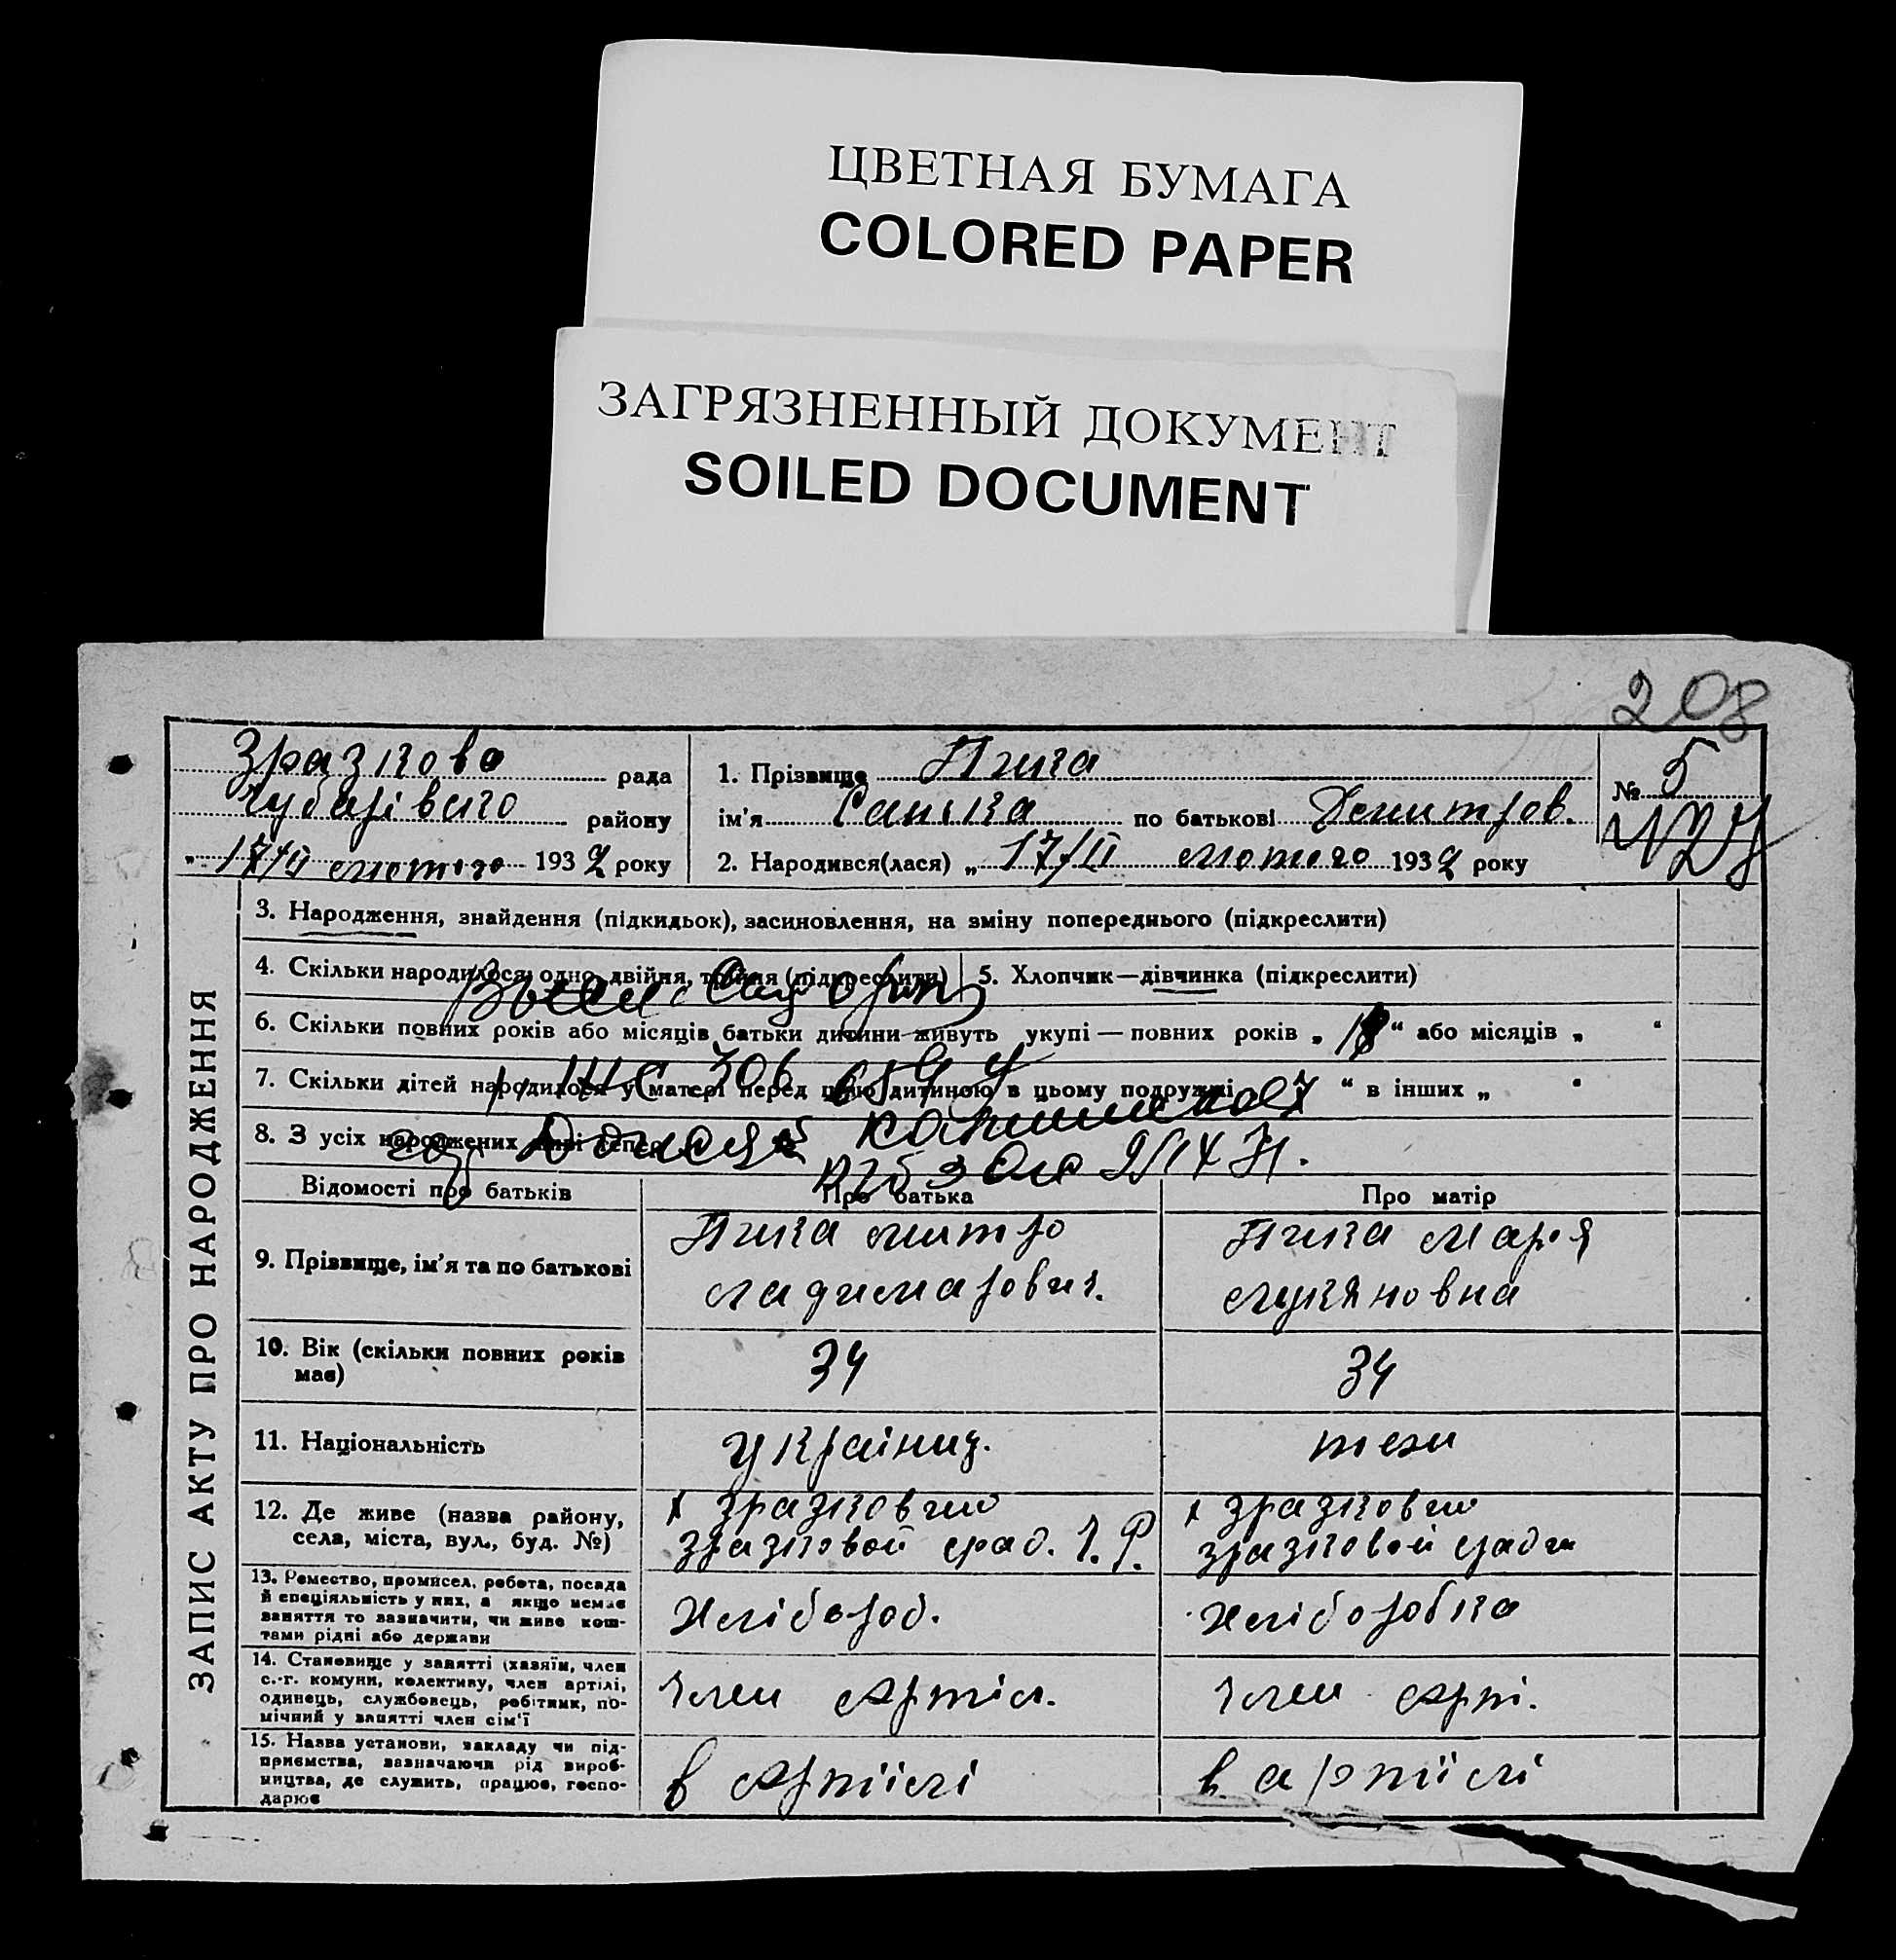 ЦВЕТНАЯ БУМАГА
COLORED PAPER
ЗАГРЯЗНЕННЫЙ ДОКУМЕНТ
SOILED DOCUMENT
208
Зразково рада
Чубарівского району
„ 17/II лютого 1932 року
1. Прізвище Пика
ім'я Санька по батькові Демитров.
2. Народився(лася) „ 17/II лютого 1932 року
№ 5
ЗАПИС АКТУ ПРО НАРОДЖЕННЯ
3. Народження, знайдення (підкидьок), засиновлення, на зміну попереднього (підкреслити)
4. Скільки народилося: одно, двійня, трійня (підкреслити)
5. Хлопчик—дівчинка (підкреслити)
6. Скільки повних років або місяців батьки дитини живуть укупі — повних років „ 18 “ або місяців „ “
7. Скільки дітей народилося у матері перед цією дитиною в цьому подружжі 7 “ в інших „ “
8. З усіх народжених живі тепер
Відомості про батьків
Про батька
Про матір
9. Прізвище, ім'я та по батькові
Пика митро
ладимарович.
Пика Мария
лукяновна
10. Вік (скільки повних років має)
34
34
11. Національність
українц.
тежи
12. Де живе (назва району,
села, міста, вул., буд. №)
х зразковий
зразковой срад. Ч. Р.
х зразкови
зразковой сради
13. Ремество, промисел, робота, посада
й спеціяльність у них, а якщо немає
заняття то зазначити, чи живе кош-
тами рідні або держави
Хлібороб.
Хліборобка
14. Становище у занятті (хазяїн, член
с.-г. комуни, колективу, член артілі,
одинець, службовець, робітник, по-
мічний у занятті член сім'ї
член Артіл.
член арті.
15. Назва установи, закладу чи під-
приємства, зазначаючи рід вироб-
ництва, де служить, працює, госпо-
дарює
в Артіїлі
в артіїлі